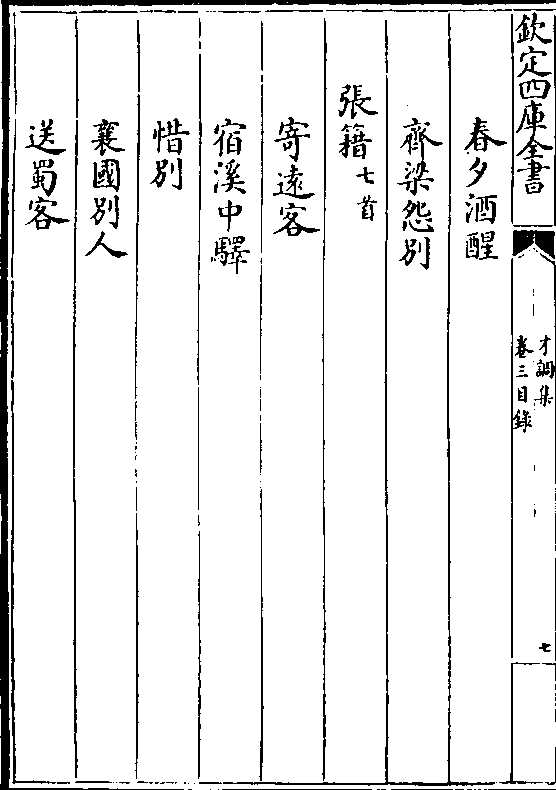 欽定四庫全書
才調集
卷三目錄
七
春夕酒醒
齊梁怨別
張籍七首
寄遠客
宿溪中驛
惜別
襄國別人
送蜀客